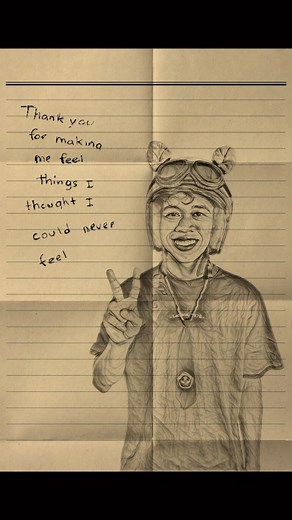 Thank you
for making
me feel
things I
thought I
could never
feel